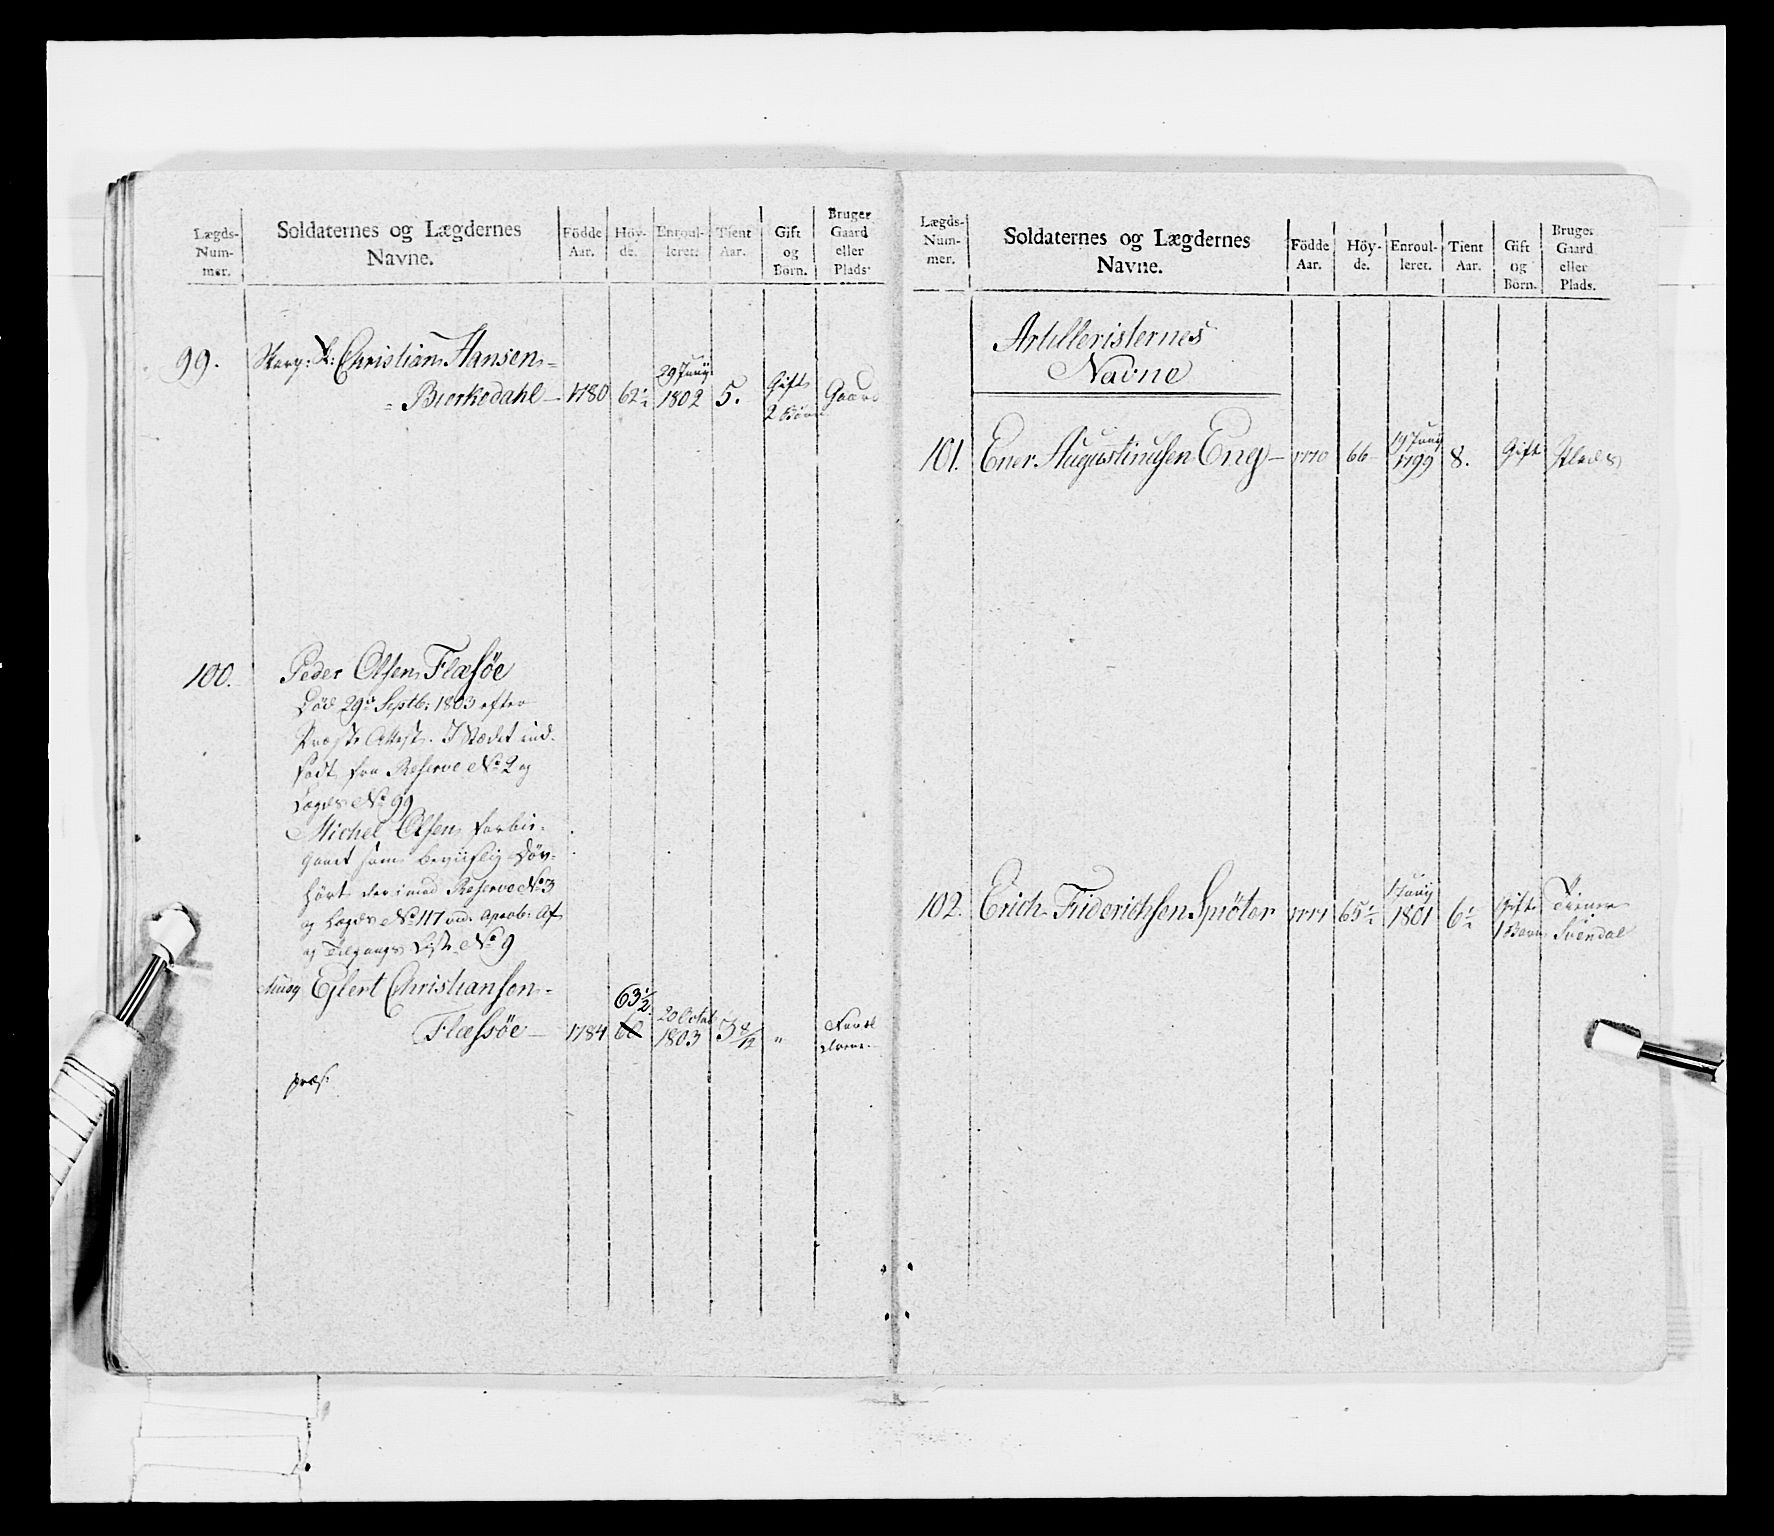 Lægds-
Num-
mer.
Soldaternes og Lægdernes
Navne.
Födde
Aar.
Höy-
de.
Enroul-
leret.
Tient
Aar.
Gift
og
Börn.
Bruger
Gaard
eller
Plads.
99. Christian Hansen
Bierkedahl 1780 62½ 29 Junij 1802 5. Gift 2 Börn Gaard
100. Peder Olsen Flæsøe
Död 29de Septb: 1803 efter
Præste Attest. I Stædet ind-
født fra Reserve No 2 og
Lægds No 99
Michel Olsen forbi-
gaaet som beviislig Döv-
hört derimod Reserve No 3
og Lægds No 117 ved Aprob: Af
og Tilgangs Liste No 9
Ejlert Christiansen
Flæssøe 1784 63½ 60 20 Octob 1803 3 8/12 "
præs.
Lægds-
Num-
mer.
Soldaternes og Lægdernes
Navne.
Födde
Aar.
Höy-
de.
Enroul-
leret.
Tient
Aar.
Gift
og
Börn.
Bruger
Gaard
eller
Plads.
Artilleristernes
Navne
101. Ener Augustinusen Eng 1770 66 19 Junij 1799 8. Gift Plads
102. Erich Friderichsen Spiöter 1771 65½ 1 Junij 1801 6½ Gift 1 Barn Tiener Svendal